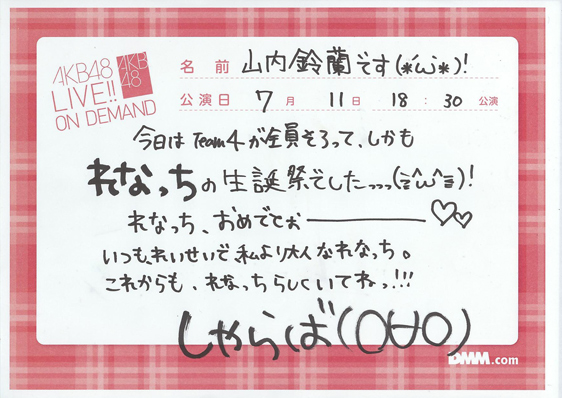 AKB48
LIVE!!
ON DEMAND
AKB
48
名前 山内鈴蘭です(*´ω`*)!
公演日 7月 11日 18:30 公演
今日はTeam4が全員そろって、しかも
れなっちの生誕祭でしたっっっ(≡^ω^≡)!
れなっち、おめでとぉ―――♡♡
いつも、れいせいで、私より大人なれなっち。
これからも、れなっちらしくいてねっ!!!
しゃらば(OωO)
DMM.com